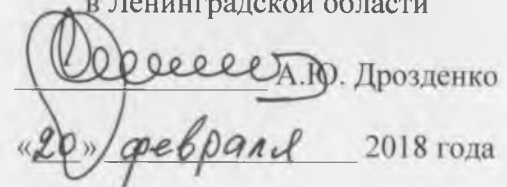 в Ленинградской области
А.Ю. Дрозденко
«20» февраля 2018 года